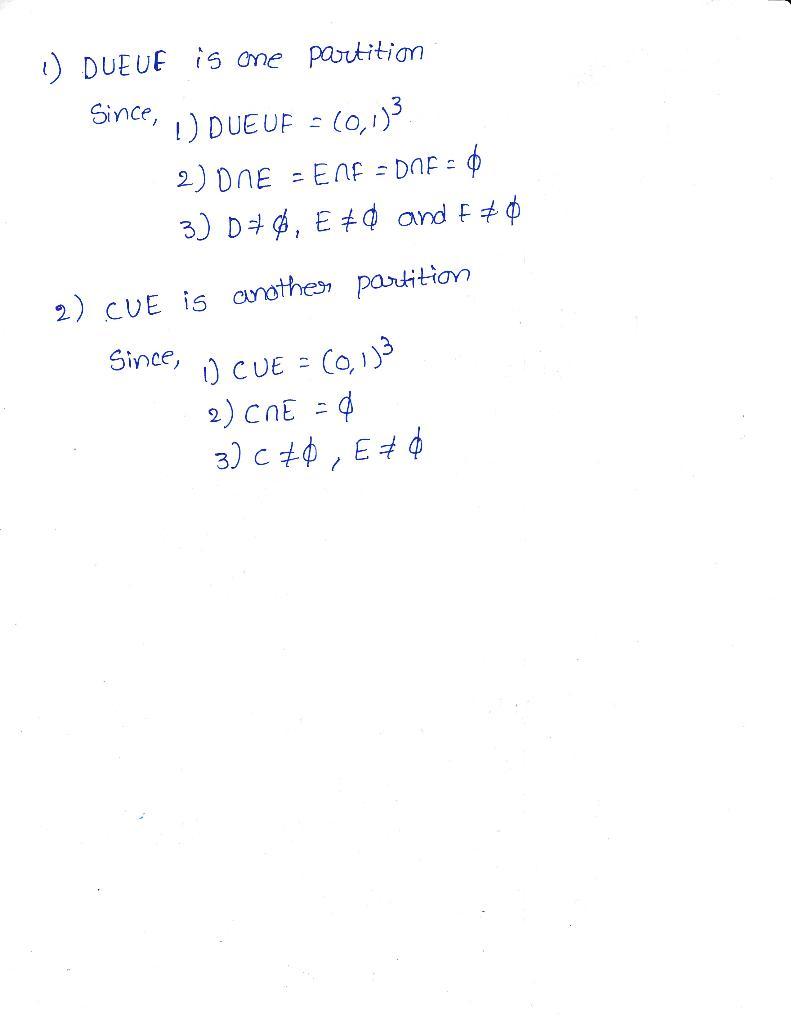 1) DUEUF is one partition
Since, 1) DUEUF = (0,1)³
2) D∩E = E∩F = D∩F = ϕ
3) D≠ϕ, E≠ϕ and F≠ϕ
2) CUE is another partition
Since, 1) CUE = (0,1)³
2) C∩E = ϕ
3) C≠ϕ, E≠ϕ